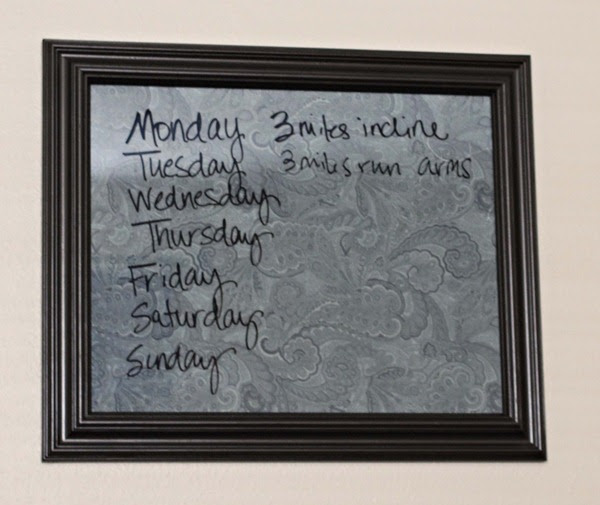 Monday 3 miles incline
Tuesday 3 miles run arms
Wednesday
Thursday
Friday
Saturday
Sunday